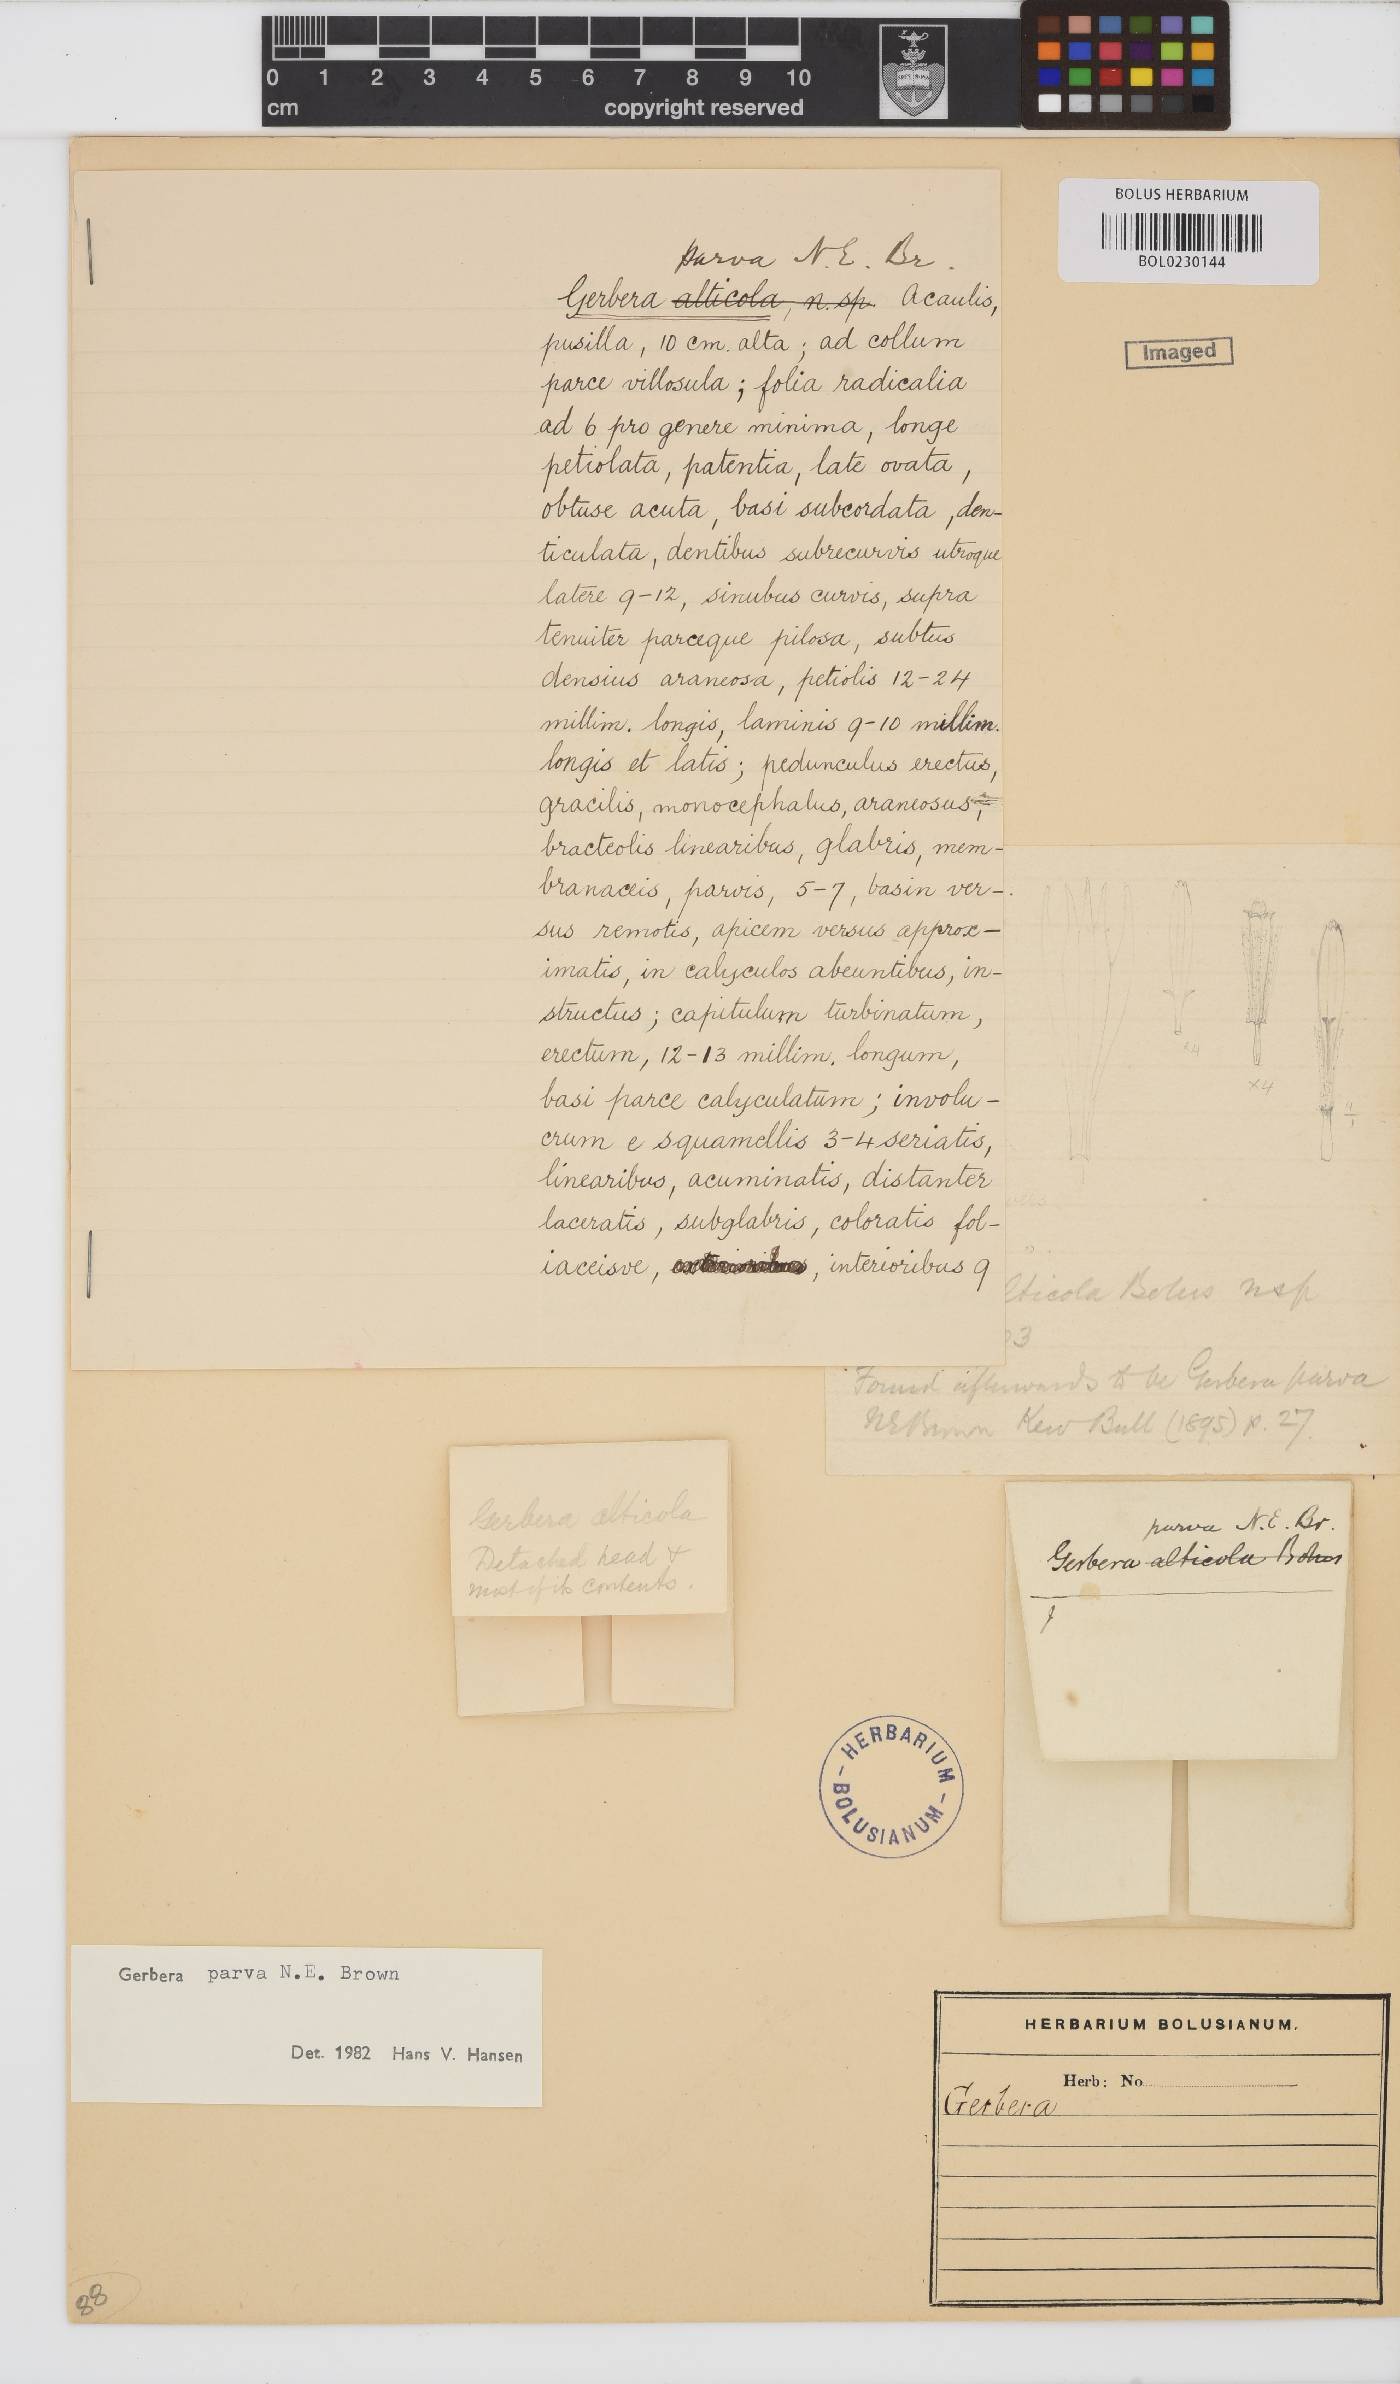 0 1 2 3 4 5 6 7 8 9 10
cm copyright reserved
BOLUS HERBARIUM
BOL0230144
Imaged
parva N.E. Br.
Gerbera alticola, n. sp. Acaulis,
pusilla, 10 cm. alta; ad collum
parce villosula; folia radicalia
ad 6 pro genere minima, longe
petiolata, patentia, late ovata,
obtuse acuta, basi subcordata, den-
ticulata, dentibus subrecurvis utroque
latere 9-12, sinubus curvis, supra
tenuiter parceque pilosa, subtus
densius araneosa, petiolis 12-24
millim. longis, laminis 9-10 millim.
longis et latis; pedunculus erectus,
gracilis, monocephalus, araneosus,
bracteolis linearibus, glabris, mem-
branaceis, parvis, 5-7, basin ver-
sus remotis, apicem versus approx-
imatis, in calyculos abeuntibus, in-
structus; capitulum turbinatum,
erectum, 12-13 millim. longum,
basi parce calyculatum; involu-
crum e squamellis 3-4 seriatis,
linearibus, acuminatis, distanter
laceratis, subglabris, coloratis fol-
iaceisve, exterioribus, interioribus 9
x4
x4
4/1
lticola Bolus nsp
03
Found afterwards to be Gerbera parva
NEBrown Kew Bull (1895) p. 27.
Gerbera alticola
Detached head &
most of its contents.
parva N.E. Br.
Gerbera alticola Bolus
HERBARIUM BOLUSIANUM
Gerbera parva N.E. Brown
Det. 1982 Hans V. Hansen
HERBARIUM BOLUSIANUM.
Herb: No
Gerbera
88